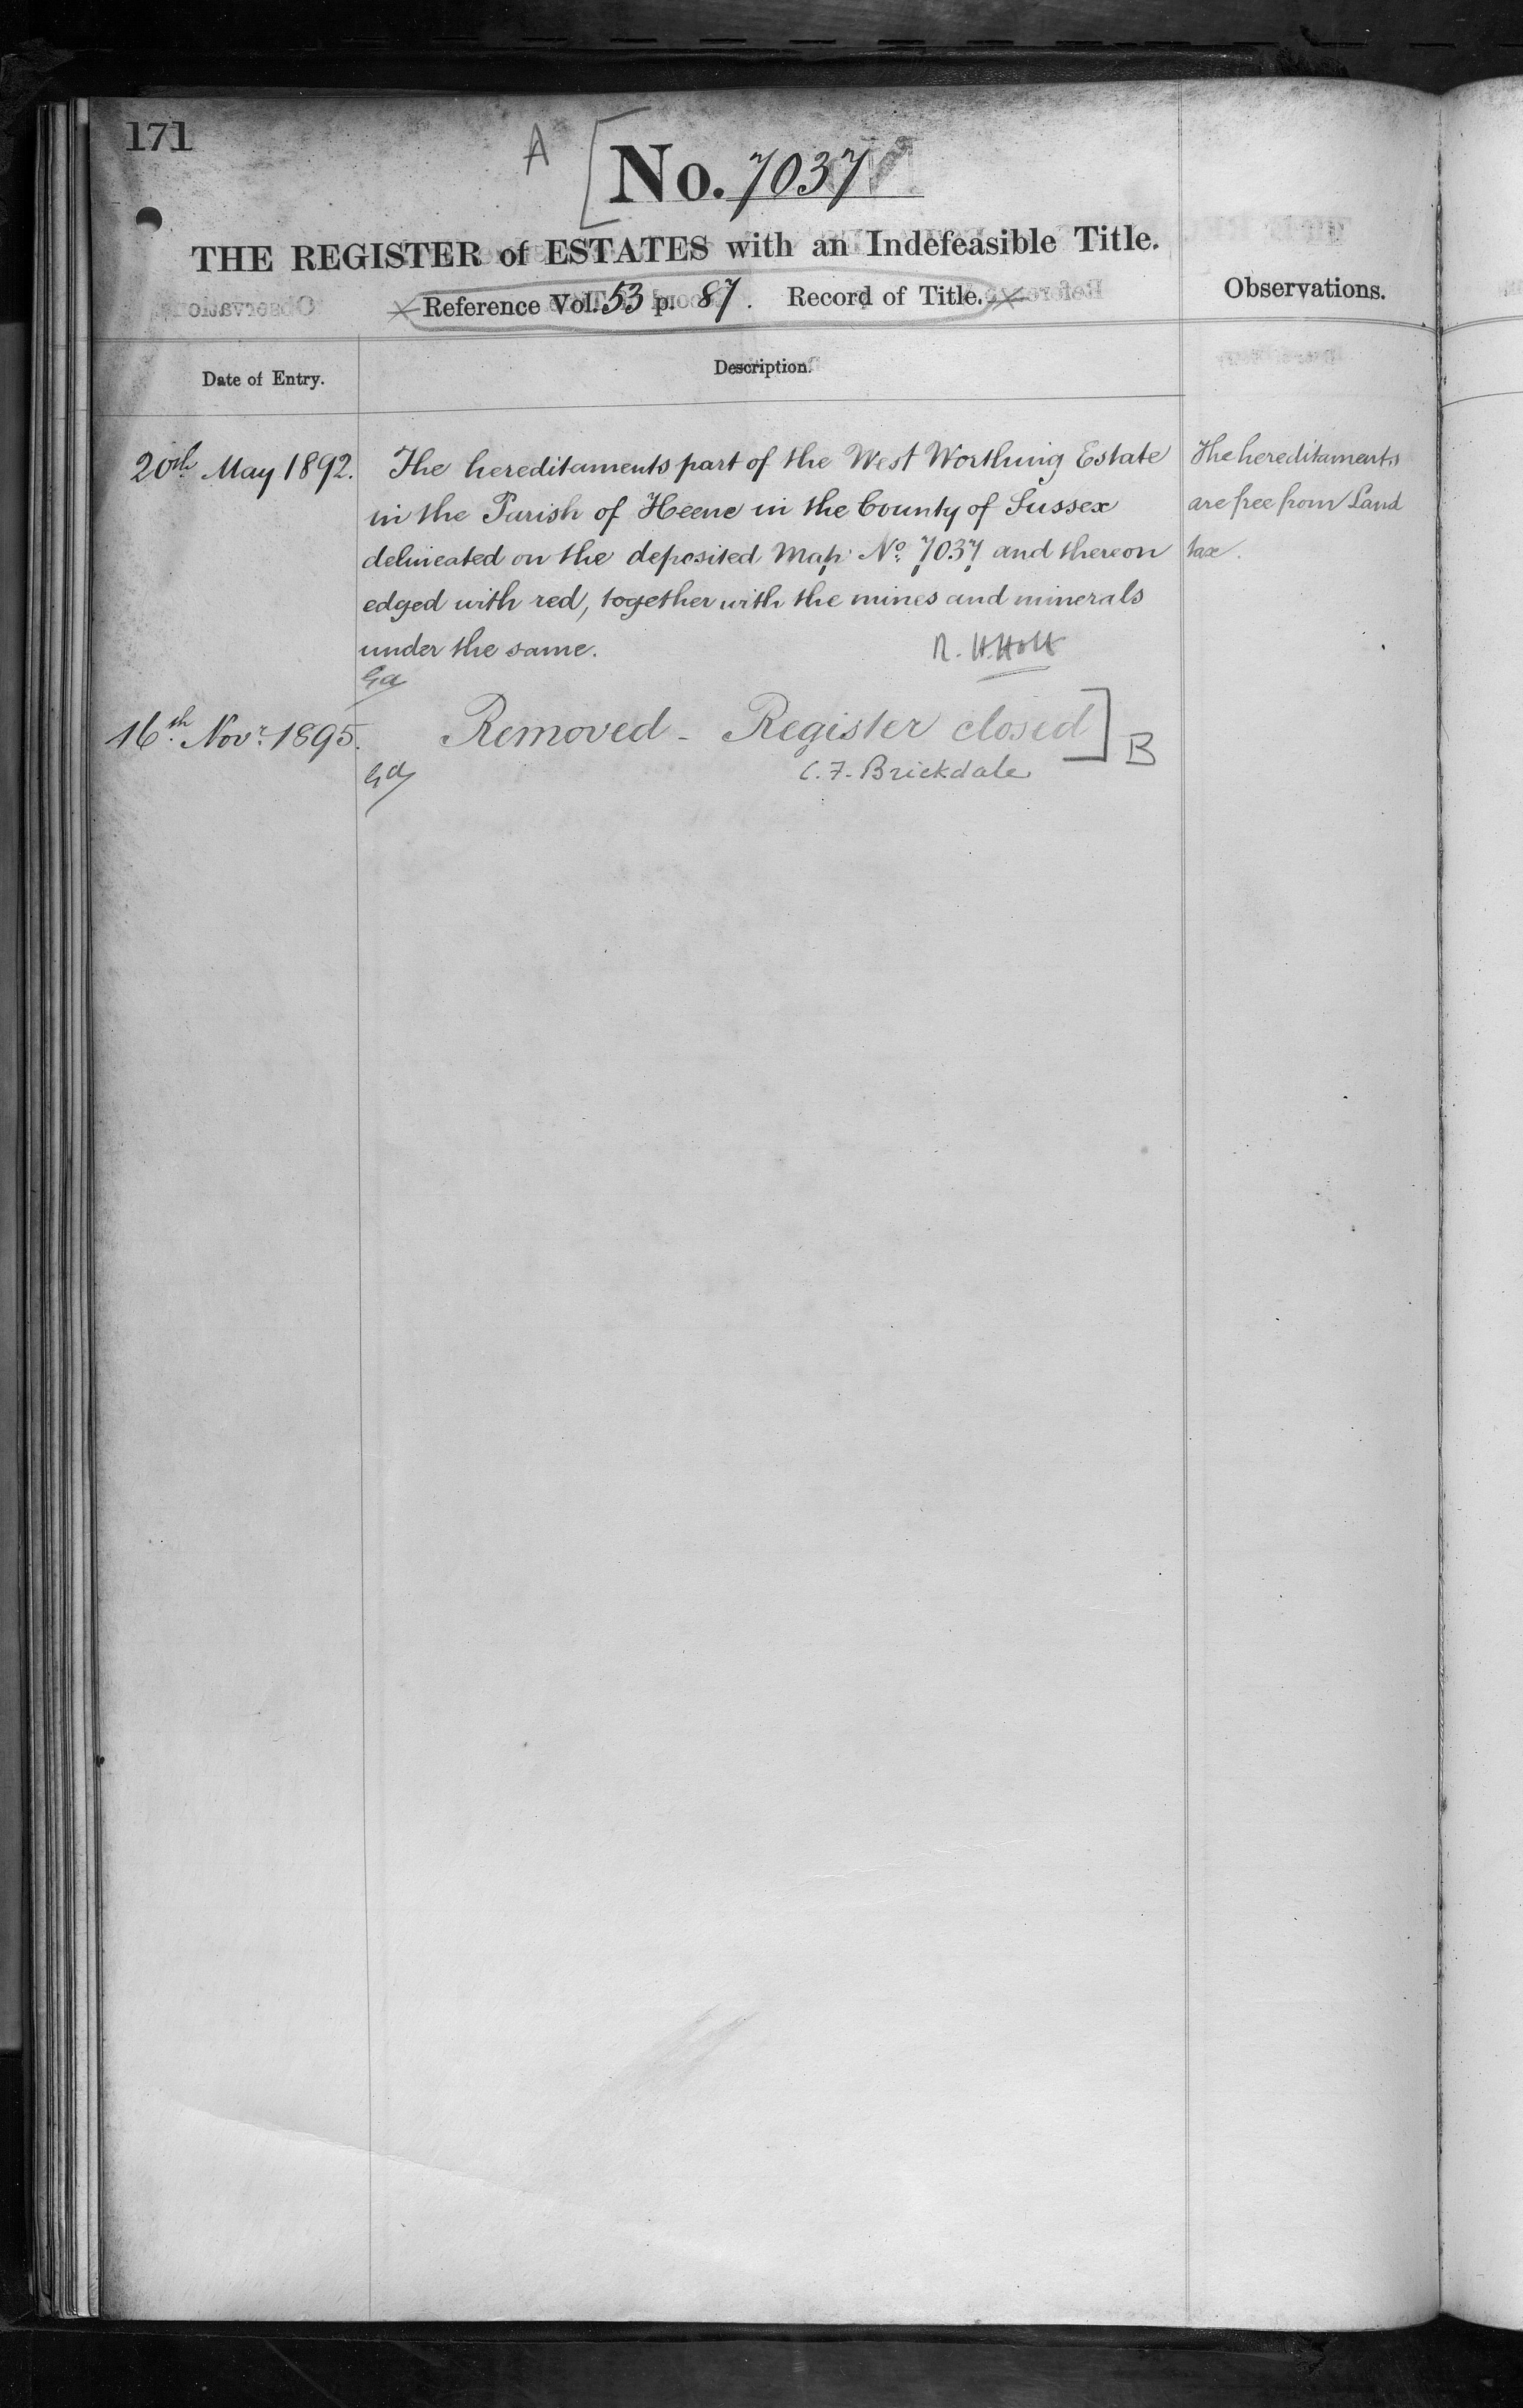 171
A [ No. 7037
THE REGISTER of ESTATES with an Indefeasible Title.
Reference Vol. 53 p. 87. Record of Title.
Observations.
Date of Entry.
Description.
20th May 1892.
The hereditaments part of the West Worthing Estate
in the Parish of Heene in the County of Sussex
delineated on the deposited Map No. 7037 and thereon
edged with red, together with the mines and minerals
under the same.
R. H. Holt
The hereditaments
are free from Land
tax.
16th Novr. 1895.
Removed - Register closed ] B
C. F. Brickdale